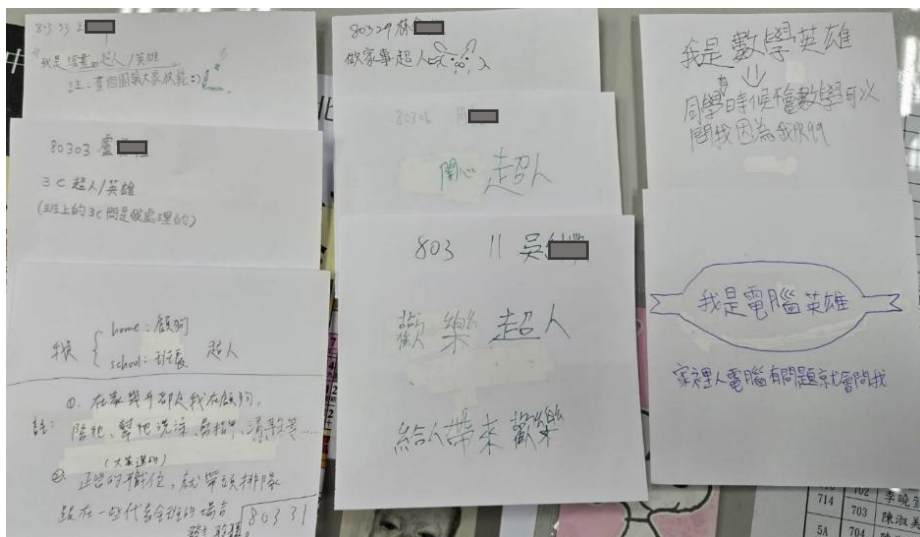 803 33 王
我是 畫畫 超人/英雄
80303 盧
3C 超人/英雄
(班上的3C問題是我處理的)
我是
home:顧狗
school:班長
超人
①. 在家幾乎都是我在顧狗,
註:陪牠、幫牠洗澡、剪指甲、清
(大家選的)
②. 正當的職位,就帶頭排隊
跟在一些代表全班的場合
80331
80329 林
做家事超人
開心 超人
803 11 吳
歡樂超人
給人帶來歡樂
我是 數學英雄
同學有時候不會數學可以
問我因為我很99
我是電腦英雄
家裡人電腦有問題就會問我
714
702
李曉
703
陳淑美
5A
704